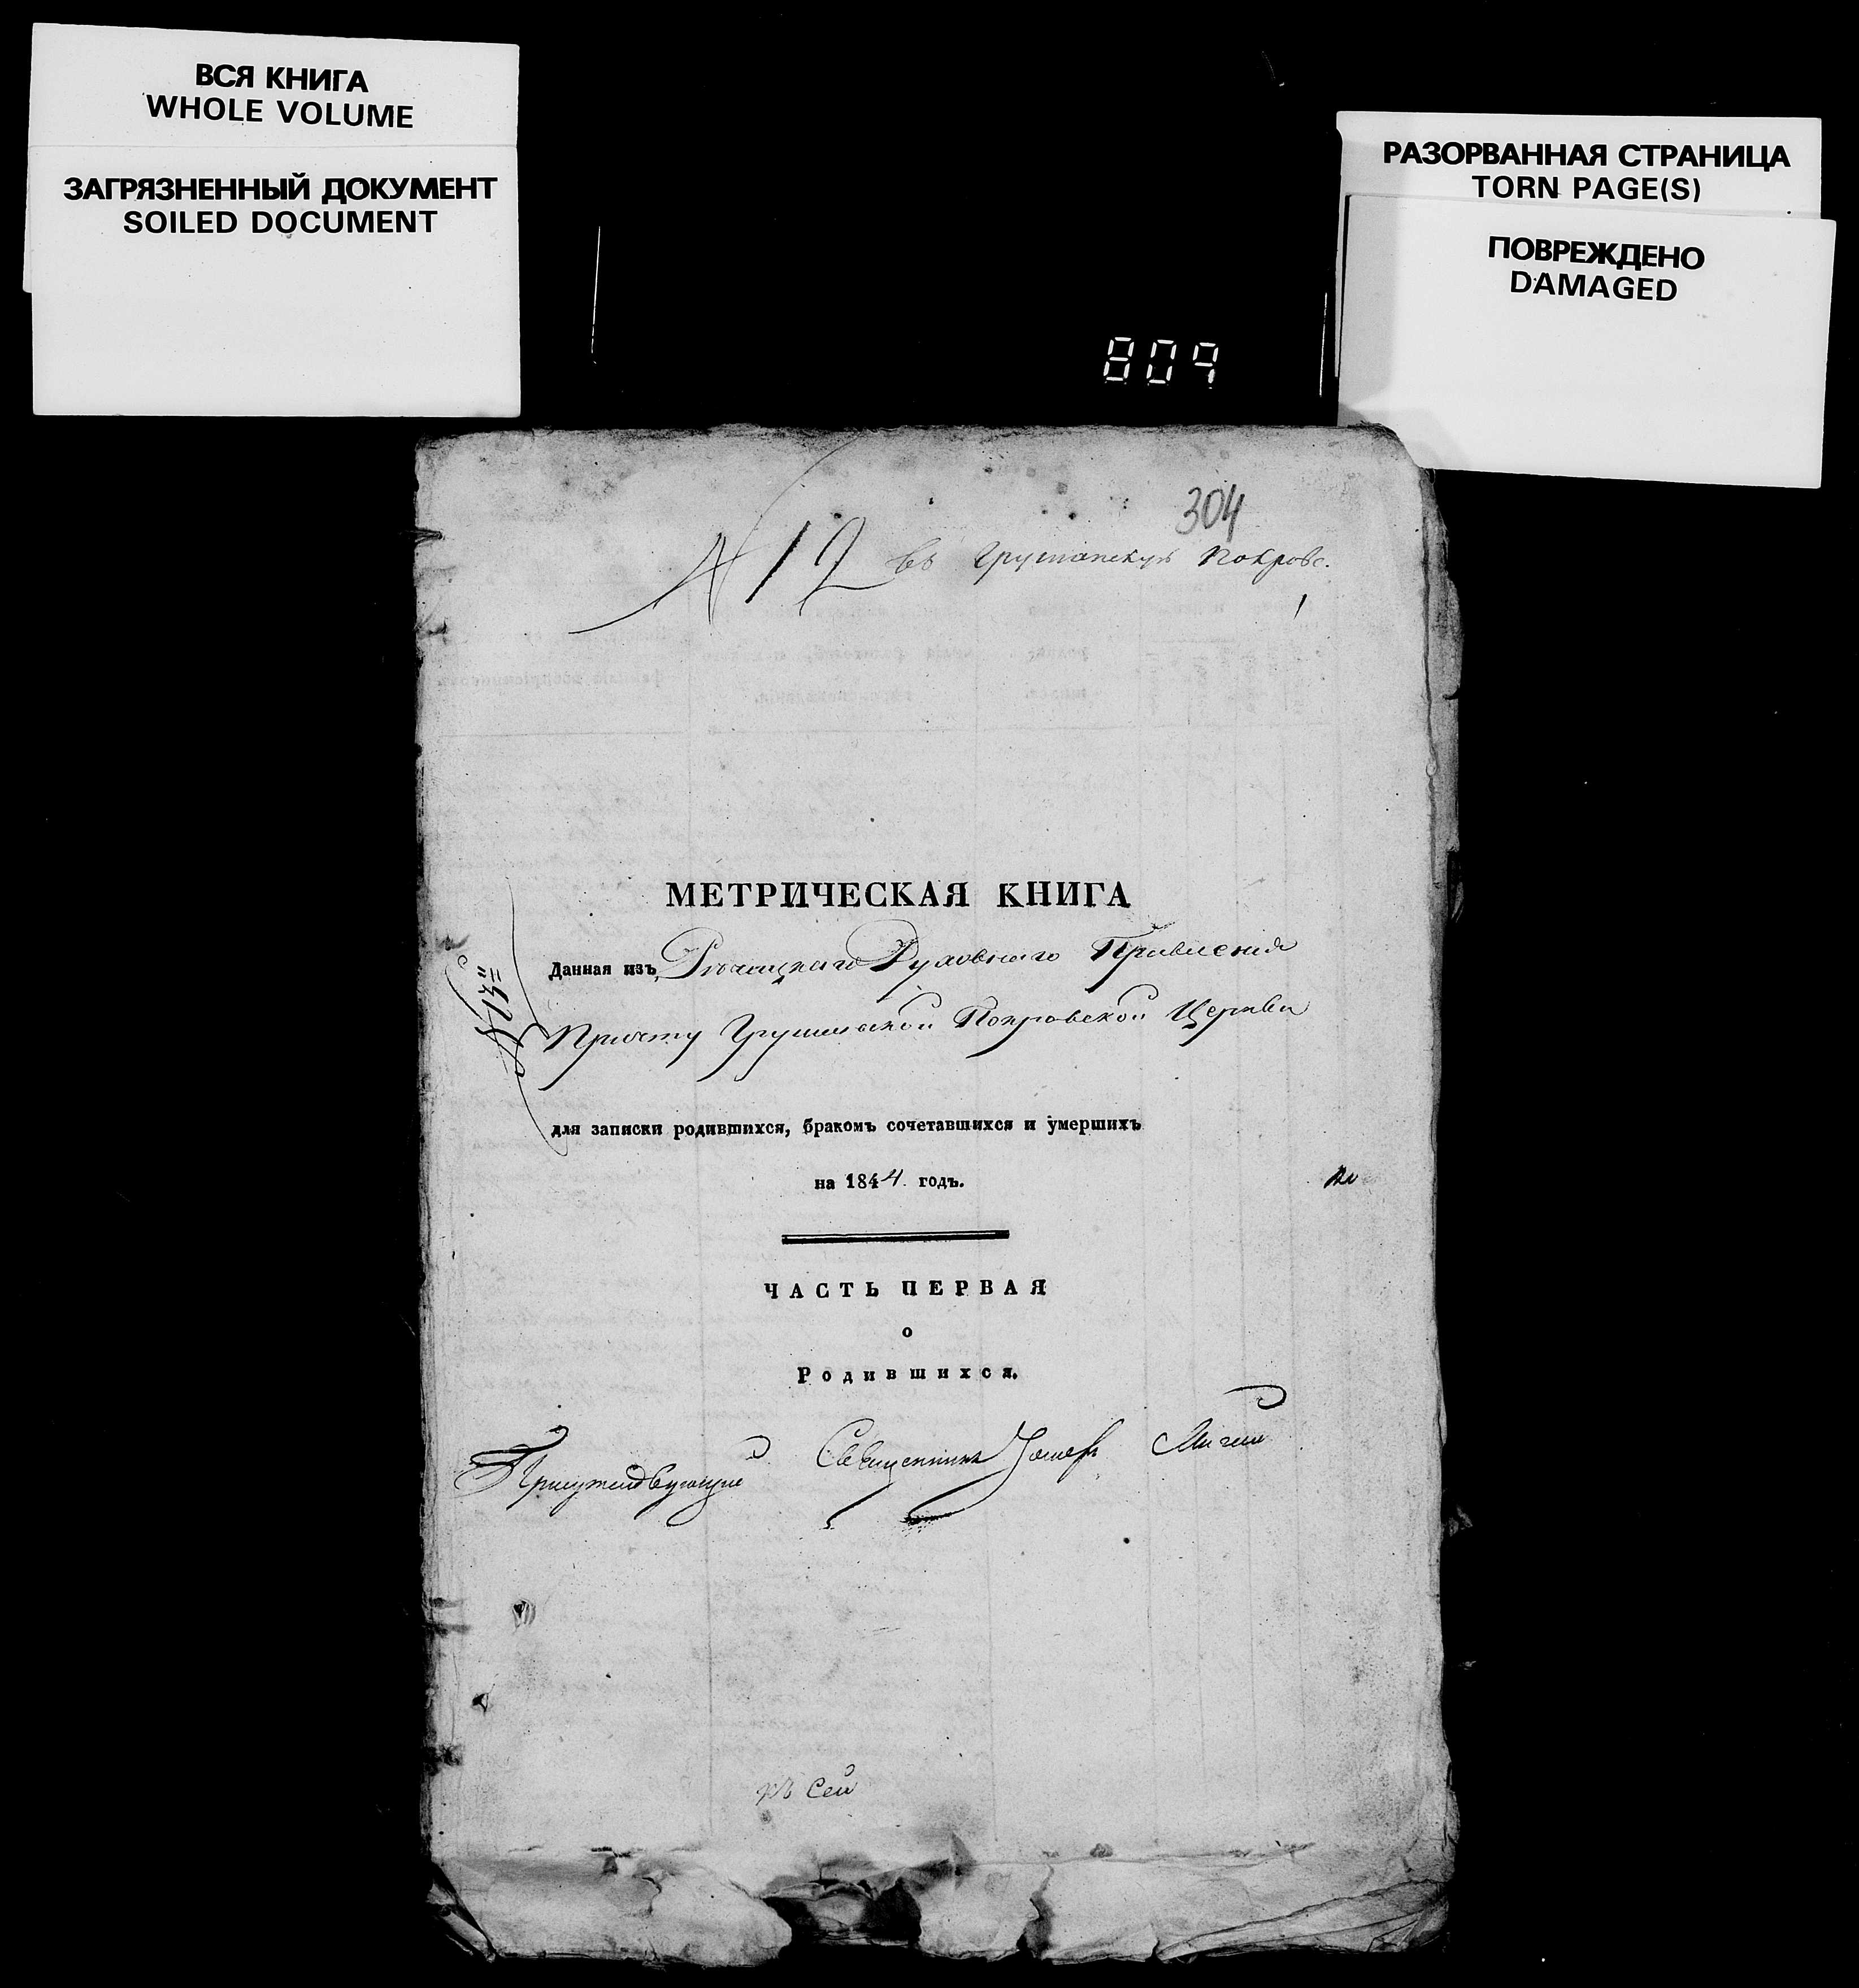 ВСЯ КНИГА
WHOLE VOLUME
ЗАГРЯЗНЕННЫЙ ДОКУМЕНТ
SOILED DOCUMENT
РАЗОРВАННАЯ СТРАНИЦА
TORN PAGE(S)
ПОВРЕЖДЕНО
DAMAGED
809
304
№ 12 въ Покровс.
МЕТРИЧЕСКАЯ КНИГА
Данная изъ Рѣчицкаго Духовнаго Правленія
Причту Покровской Церкви
для записки родившихся, бракомъ сочетавшихся и умершихъ
на 1844 годъ.
ЧАСТЬ ПЕРВАЯ
о
Родившихся.
Присутствующие Священникъ
къ сей